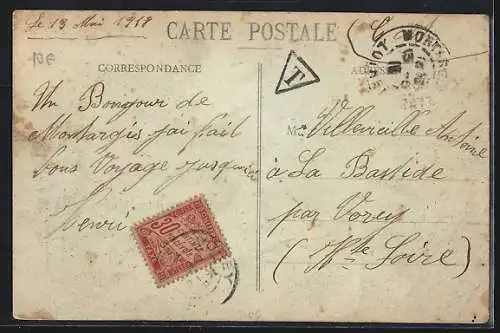 le 13 Mai 1918
CARTE POSTALE
10€
CORRESPONDANCE
T
Un Bonjour de
Montargis j'ai fait
bons Voyage jusqu'
Henri
30
M. Villevieille Antoine
à La Bastide
par Vorey
(Hte Loire)